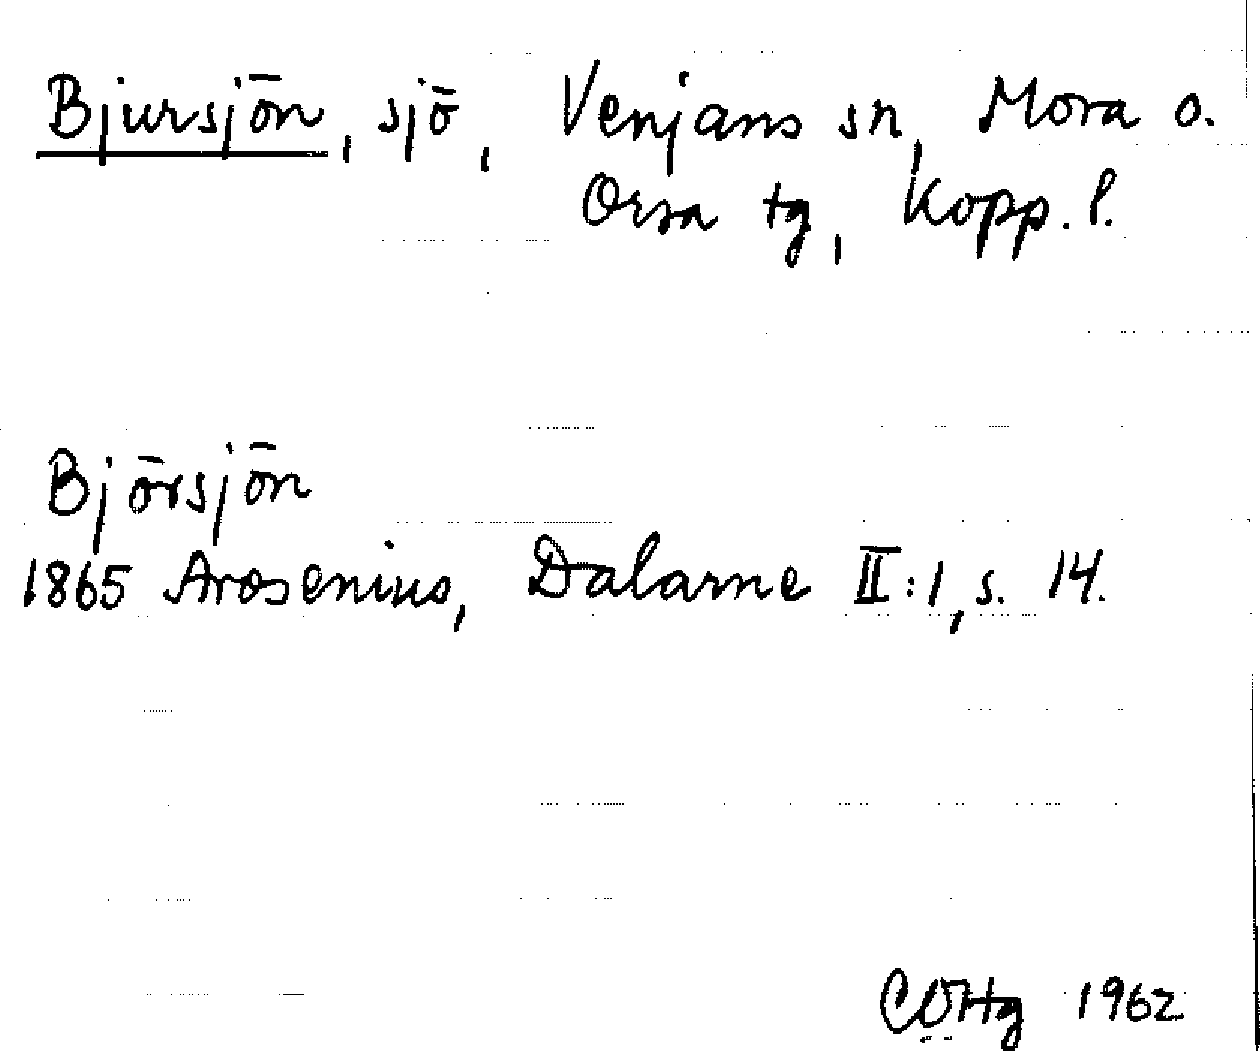 Bjursjön, sjö, Venjans sn, Mora o.
Orsa tg, Kopp. l.
Björsjön
1865 Arosenius, Dalarne II:1, s. 14.
1962